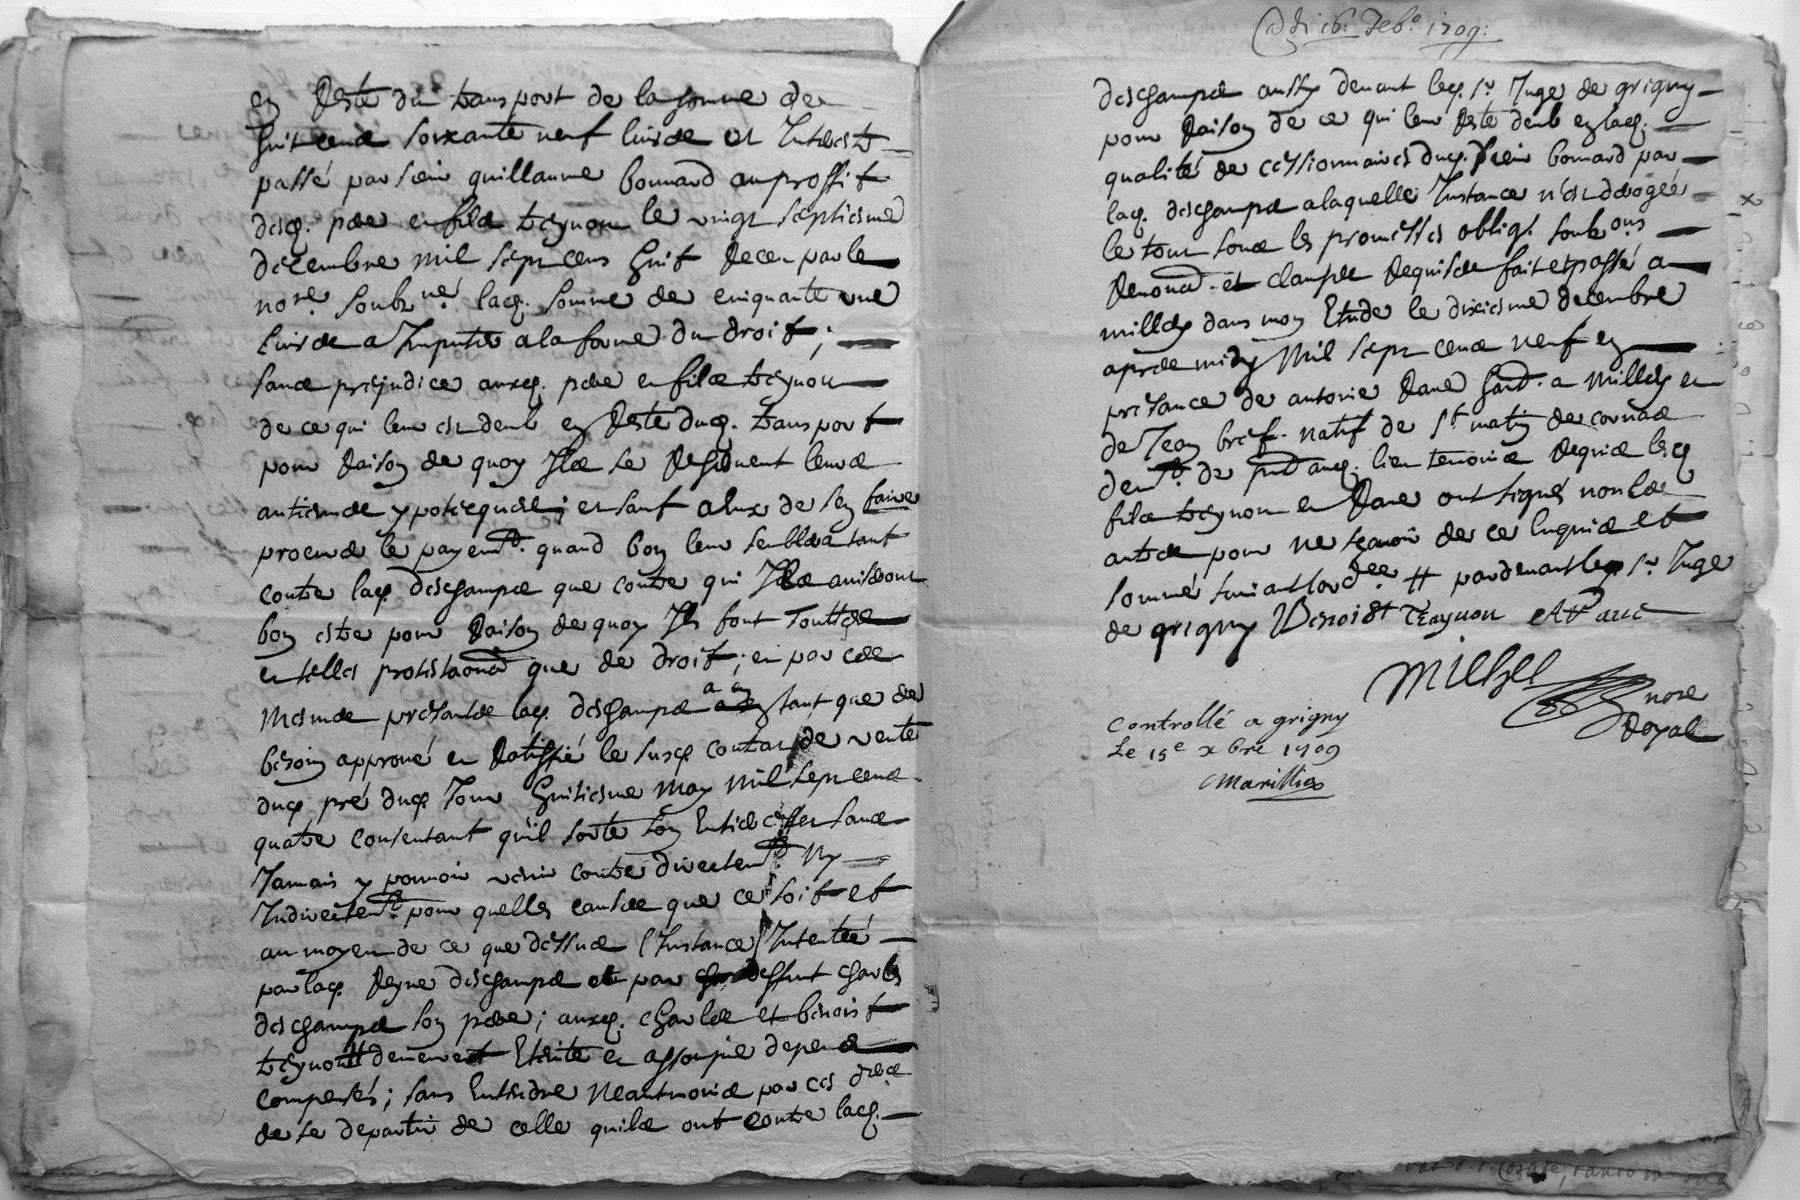 en reste du transport de la somme de
huit cens soixante neuf livres et Interests
passé par sieur guillaume bonnard au proffit
desq. pere et fils treynon le vingt septiesme
decembre mil sept cens huit receu par le
nore. soubzné. laq. somme de cinquante une
livres a Imputer a la forme du droit;
sans préjudice auxq. pere et fils treynon
de ce qui leur est deub en reste duq. transport
pour raison de quoy Ils se reservent leurs
antiennes ypotecques; et sauf a eux de sen faire
procurer le payemt. quand bon leur semblera tant
contre laq. deschamps que contre qui Ils aviseront
bon estre pour raison de quoy Ils font Touttes
et telles protestaons que de droit; et par ces
mesmes présantes laq. deschamps a en tant que de
besoin approuvé et Ratiffié le susq. contrat de vente
duq. pré duq. Jour huitiesme may mil sept cens
quatre consentant qu'il sorte son Entier effet sans
Jamais y pouvoir venir contre directemt. ny
Indirectemt. pour quelles causes que ce soit et
au moyen de ce que dessus l'Instance Intentée
par laq. Reyne deschamps et par deffunt charles
deschamps son pere; auxq. charles et benoist
treynon # demeurent Eteinte et assoupie depens
compensés; sans Entendre neantmoins par ces dres
de se departir de celle quils ont contre laq.
@ di 16. Feb.o 1709:
deschamps aussy devant leq. sr. Juge de grigny
pour Raison de ce qui leur reste deub en laq.
qualité de cessionnaires duq. sieur bonnard par
laq. deschamps a laquelle Instance n'est derogée
le tout sous les promesses obligs. soubons
renond. et clauses requises fait et passé a
millery dans mon Etude le dixiesme decembre
apres midy mil sept cens neuf en
présance de antoine Rave habt. a millery et
de Jean bref. natif de st matin de cornas
demt. de pnt auq. lieu temoins requis lesq
fils treynon et Rave ont signés non les
autres pour ne sçavoir de ce Enquis et
sommé suivant lordee # par devant leq sr Juge
de grigny Benoist Treynon A Rave
Michel
nore
Royal
Controllé a grigny
Le 15e xbre 1709
Marillier